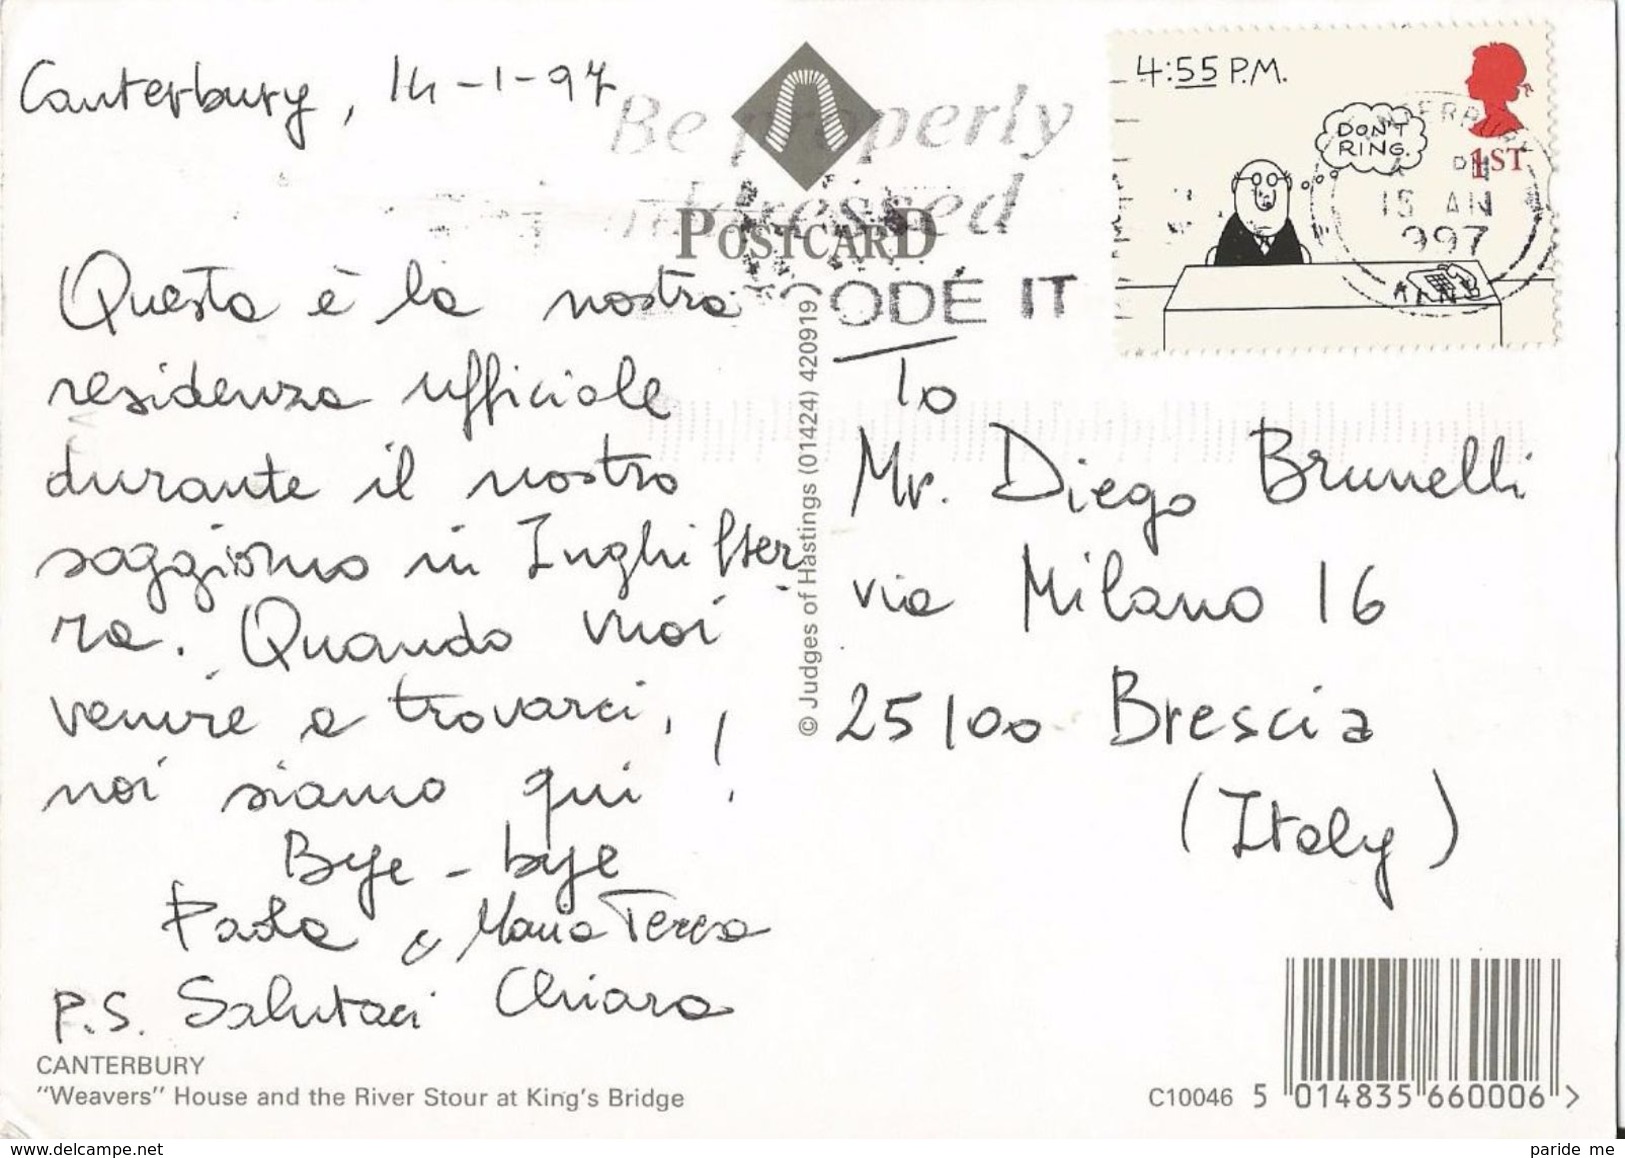 Canterbury, 14-1-97
Be properly
addressed
POSTCODE IT
POSTCARD
4:55 P.M.
DON'T
RING.
1ST
15 JAN
1997
Questa è la nostra
residenza ufficiale
durante il nostro
soggiorno in Inghilter
ra. Quando vuoi
venire a trovarci,
noi siamo qui!
Bye-bye
Paola e Maria Teresa
P.S. Salutaci Chiara
© Judges of Hastings (01424) 420919
To
Mr. Diego Brunelli
via Milano 16
25100 Brescia
(Italy)
CANTERBURY
"Weavers" House and the River Stour at King's Bridge
C10046 5 014835 660006 >
paride me